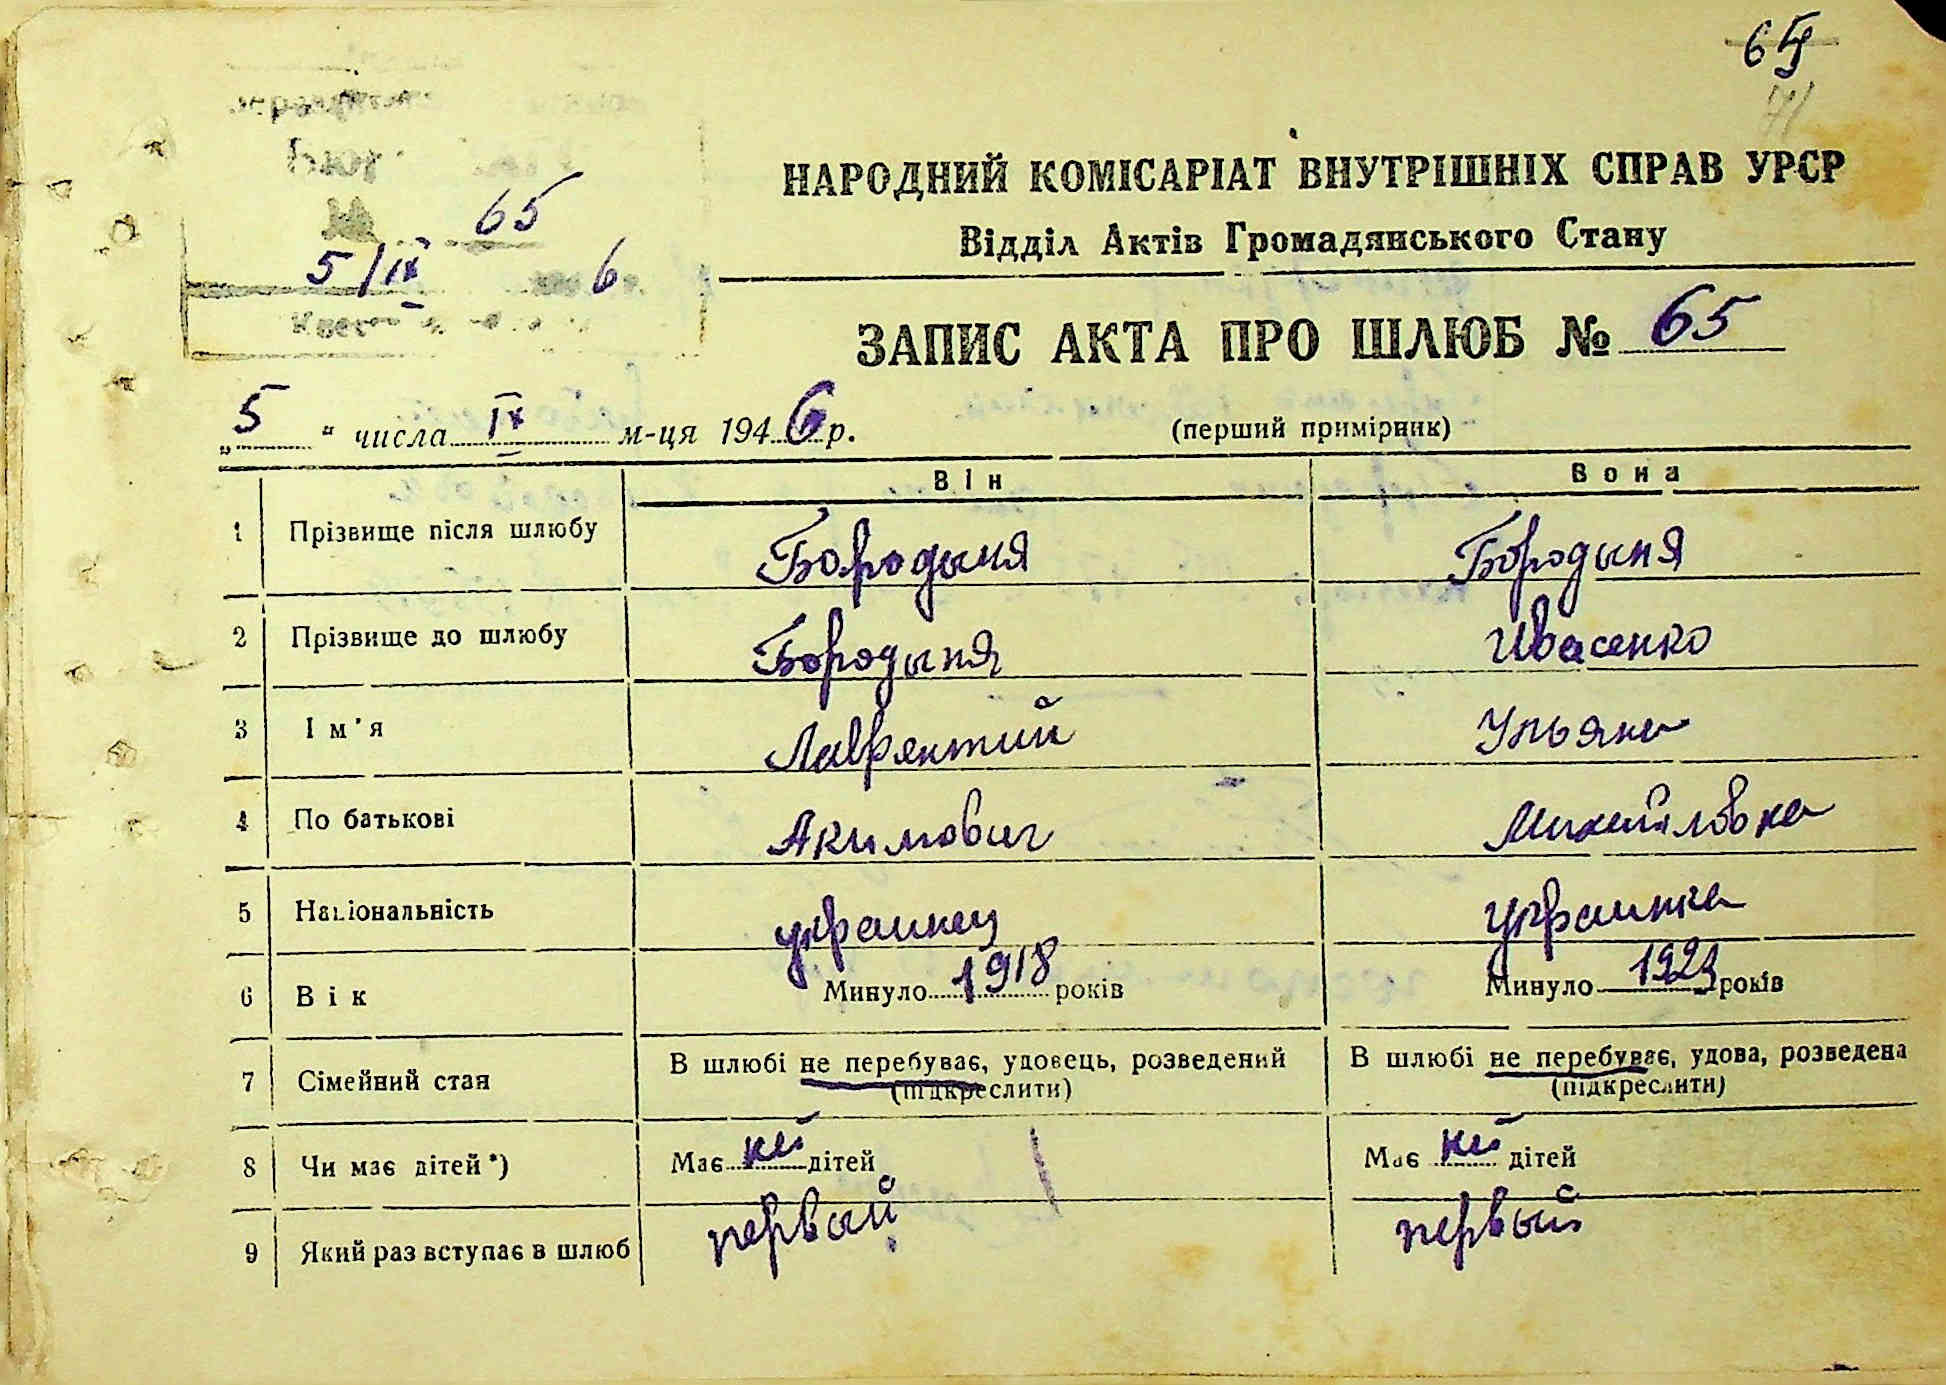 65
71
65
5/IX 6
НАРОДНИЙ КОМІСАРІАТ ВНУТРІШНІХ СПРАВ УРСР
Відділ Актів Громадянського Стану
ЗАПИС АКТА ПРО ШЛЮБ № 65
„5“ числа IX м-ця 1946 р. (перший примірник)
Він Вона
1 Прізвище після шлюбу Бородыня Бородыня
2 Прізвище до шлюбу Бородыня Ивасенко
3 Ім'я Лаврентий Ульяна
4 По батькові Акимович Михайловна
5 Національність украинец украинка
6 Вік Минуло 1918 років Минуло 1921 років
7 Сімейний стан В шлюбі не перебуває, удовець, розведений (підкреслити) В шлюбі не перебуває, удова, розведена (підкреслити)
8 Чи має дітей*) Має дітей Має дітей
9 Який раз вступає в шлюб первый первый